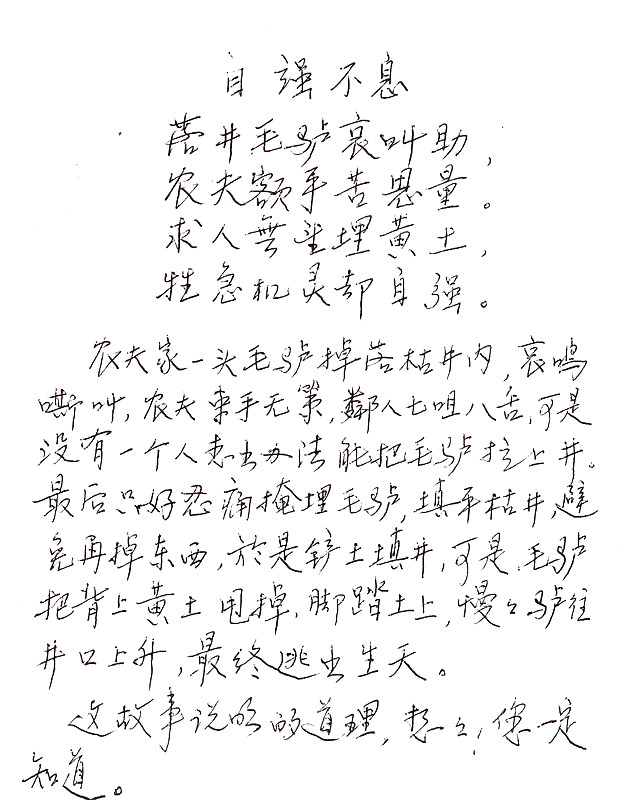 自强不息
落井毛驴哀叫助，
农夫额手苦思量。
求人無望埋黃土，
牲急机灵却自强。
农夫家一头毛驴掉落枯井内，哀鸣
嘶叫，农夫束手无策，鄰人七咀八舌，可是
没有一个人想出办法能把毛驴拉上井。
最后只好忍痛掩埋毛驴，填平枯井，避
免再掉东西，於是铲土填井，可是，毛驴
把背上黃土甩掉，脚踏土上，慢々驴往
井口上升，最终逃出生天。
这故事说明的道理，想々，您一定
知道。